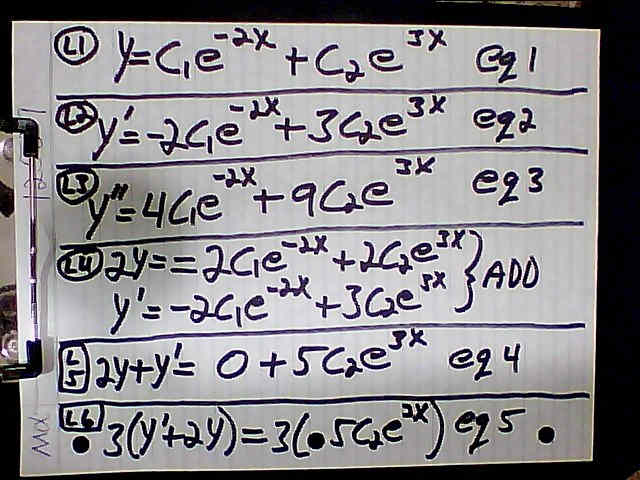 L1 y=C₁e⁻²ˣ + C₂e³ˣ eq1
L2 y'=-2C₁e⁻²ˣ+3C₂e³ˣ eq2
L3 y''=4C₁e⁻²ˣ+9C₂e³ˣ eq3
L4 2y==2C₁e⁻²ˣ+2C₂e³ˣ } ADD
y'=-2C₁e⁻²ˣ+3C₂e³ˣ
L5 2y+y'= 0+5C₂e³ˣ eq4
L6 3(y'+2y)=3(•5C₂e²ˣ) eq5